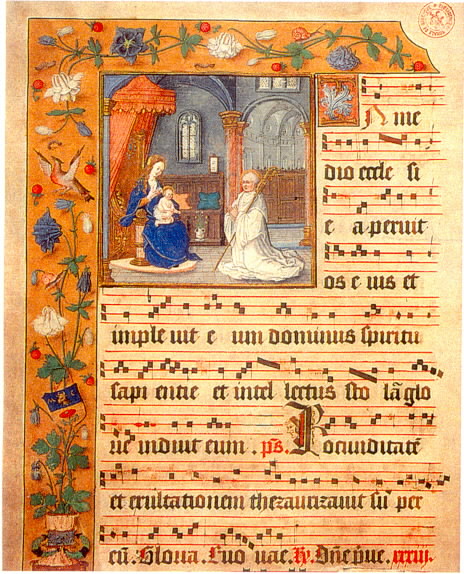 In me
dio eccle si
e aperuit
os e ius et
imple uit e um dominus spiritu
sapi entie et intel lectus sto lā glo
rie induit eum. ps. Iocunditatē
et exultationem thezaurizauit su per
eū. Gloria. Euo uae. xxxiii.